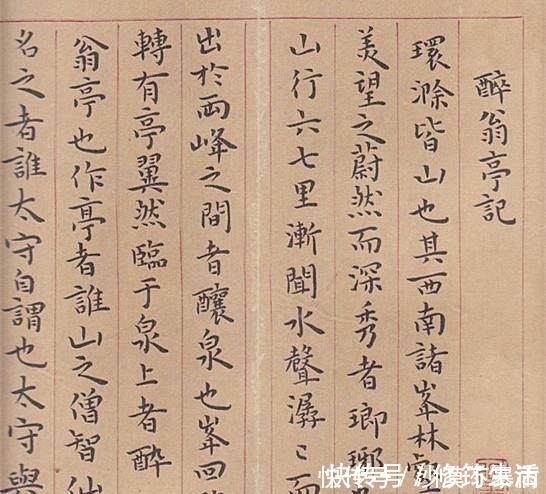 醉翁亭記
環滁皆山也其西南諸峯林壑
美望之蔚然而深秀者瑯琊
山行六七里漸聞水聲潺〻而
出於兩峰之間者釀泉也峯回
轉有亭翼然臨于泉上者醉
翁亭也作亭者誰山之僧智仙
名之者誰太守自謂也太守與
快转号/